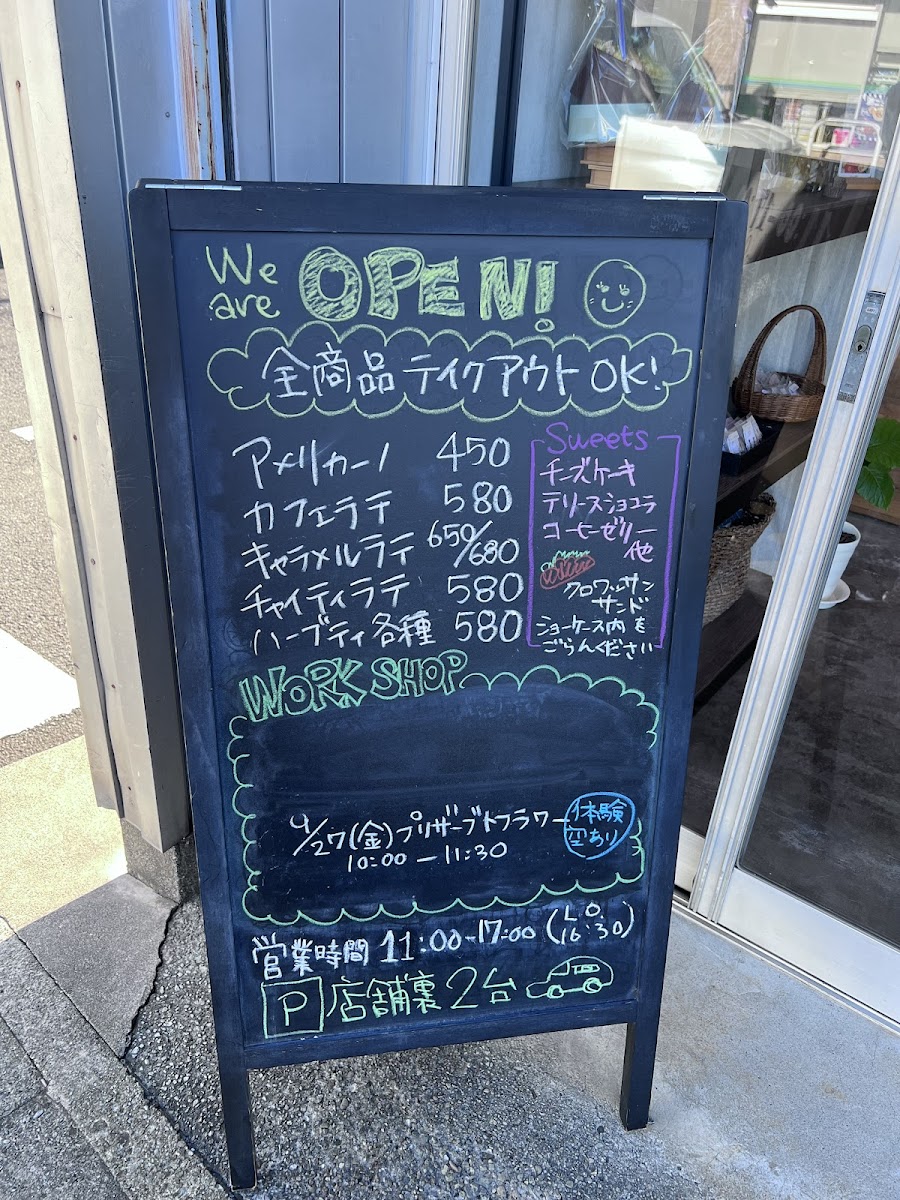 We are OPEN!
全商品 テイクアウト OK!
アメリカーノ 450
カフェラテ 580
キャラメルラテ 650/680
チャイティラテ 580
ハーブティ各種 580
Sweets
チーズケーキ
テリーヌショコラ
コーヒーゼリー
他
クロワッサン
サンド
ショーケース内を
ごらんください
WORK SHOP
4/27(金)プリザーブトフラワー
10:00 ー 11:30
体験
空あり
営業時間 11:00-17:00 (L.O. 16:30)
P 店舗裏 2台